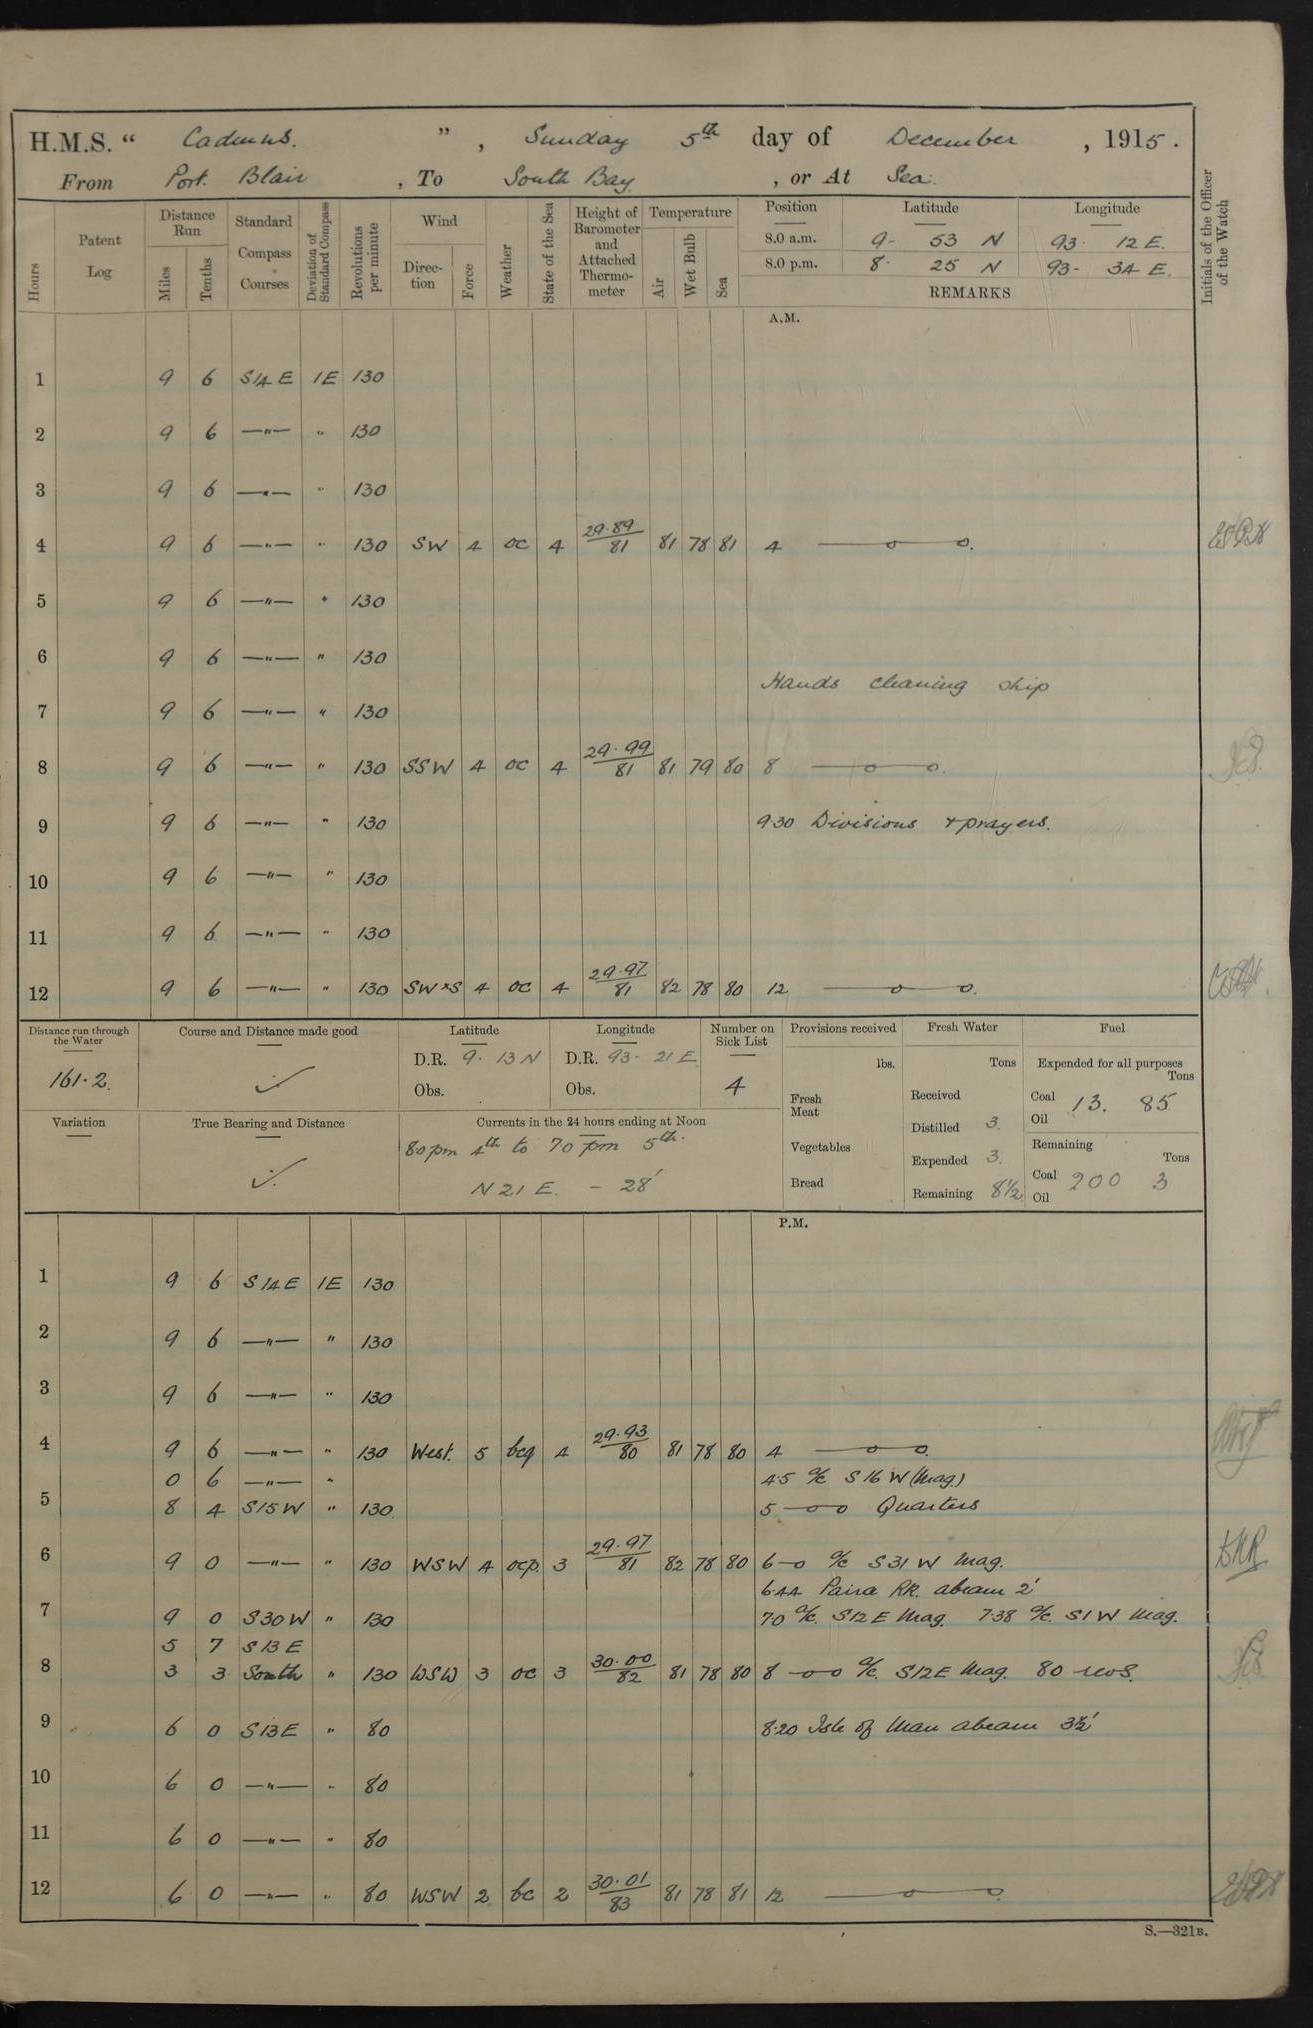 H.M.S. " Cadmus. ", Sunday 5th day of December, 1915.
From Port Blair, To South Bay, or At Sea.
Hours
Patent Log
Distance Run
Miles
Tenths
Standard Compass Courses
Deviation of Standard Compass
Revolutions per minute
Wind
Direction
Force
Weather
State of the Sea
Height of Barometer and Attached Thermometer
Temperature
Air
Wet Bulb
Sea
Position Latitude Longitude
8.0 a.m. 9- 53 N 93. 12 E.
8.0 p.m. 8. 25 N 93- 34 E.
REMARKS
Initials of the Officer of the Watch
A.M.
1 9 6 S14E 1E 130
2 9 6 —"— " 130
3 9 6 —"— " 130
4 9 6 —"— " 130 SW 4 oc 4 29.89/81 81 78 81 4 —o—o.
5 9 6 —"— " 130
6 9 6 —"— " 130
Hands cleaning ship
7 9 6 —"— " 130
8 9 6 —"— " 130 SSW 4 oc 4 29.99/81 81 79 80 8 —o—o.
9 9 6 —"— " 130 9.30 Divisions + prayers.
10 9 6 —"— " 130
11 9 6 —"— " 130
12 9 6 —"— " 130 SWxS 4 oc 4 29.97/81 82 78 80 12 —o—o.
Distance run through the Water
161.2.
Course and Distance made good
Latitude
D.R. 9. 13 N
Obs.
Longitude
D.R. 93- 21 E
Obs.
Number on Sick List
4
Provisions received
lbs.
Fresh Meat
Vegetables
Bread
Fresh Water
Tons
Received
Distilled 3
Expended 3.
Remaining 8½
Fuel
Expended for all purposes
Tons
Coal 13. 85
Oil
Remaining
Tons
Coal 200 3
Oil
Variation
True Bearing and Distance
Currents in the 24 hours ending at Noon
80 pm 4th to 70 pm 5th.
N 21 E. - 28'
P.M.
1 9 6 S14E 1E 130
2 9 6 —"— " 130
3 9 6 —"— " 130
4 9 6 —"— " 130 West. 5 bcq 4 29.93/80 81 78 80 4 —o—o.
0 6 —"— " 4.5 a/c S16W (Mag)
5 8 4 S15W " 130 5 —o—o Quarters
6 9 0 —"— " 130 WSW 4 ocp. 3 29.97/81 82 78 80 6—o a/c S31W Mag.
6.44 Paira RK. abeam 2'
7 9 0 S30W " 130 70 a/c. S12E Mag. 7.38 a/c. S1W Mag.
5 7 S13E
8 3 3 South " 130 WSW 3 oc 3 30.00/82 81 78 80 8 —o—o a/c. S12E Mag. 80 revs.
9 6 0 S13E " 80 8.20 Isle of Man abeam 3½'
10 6 0 —"— " 80
11 6 0 —"— " 80
12 6 0 —"— " 80 WSW 2 bc 2 30.01/83 81 78 81 12 —o—o.
S.—321B.